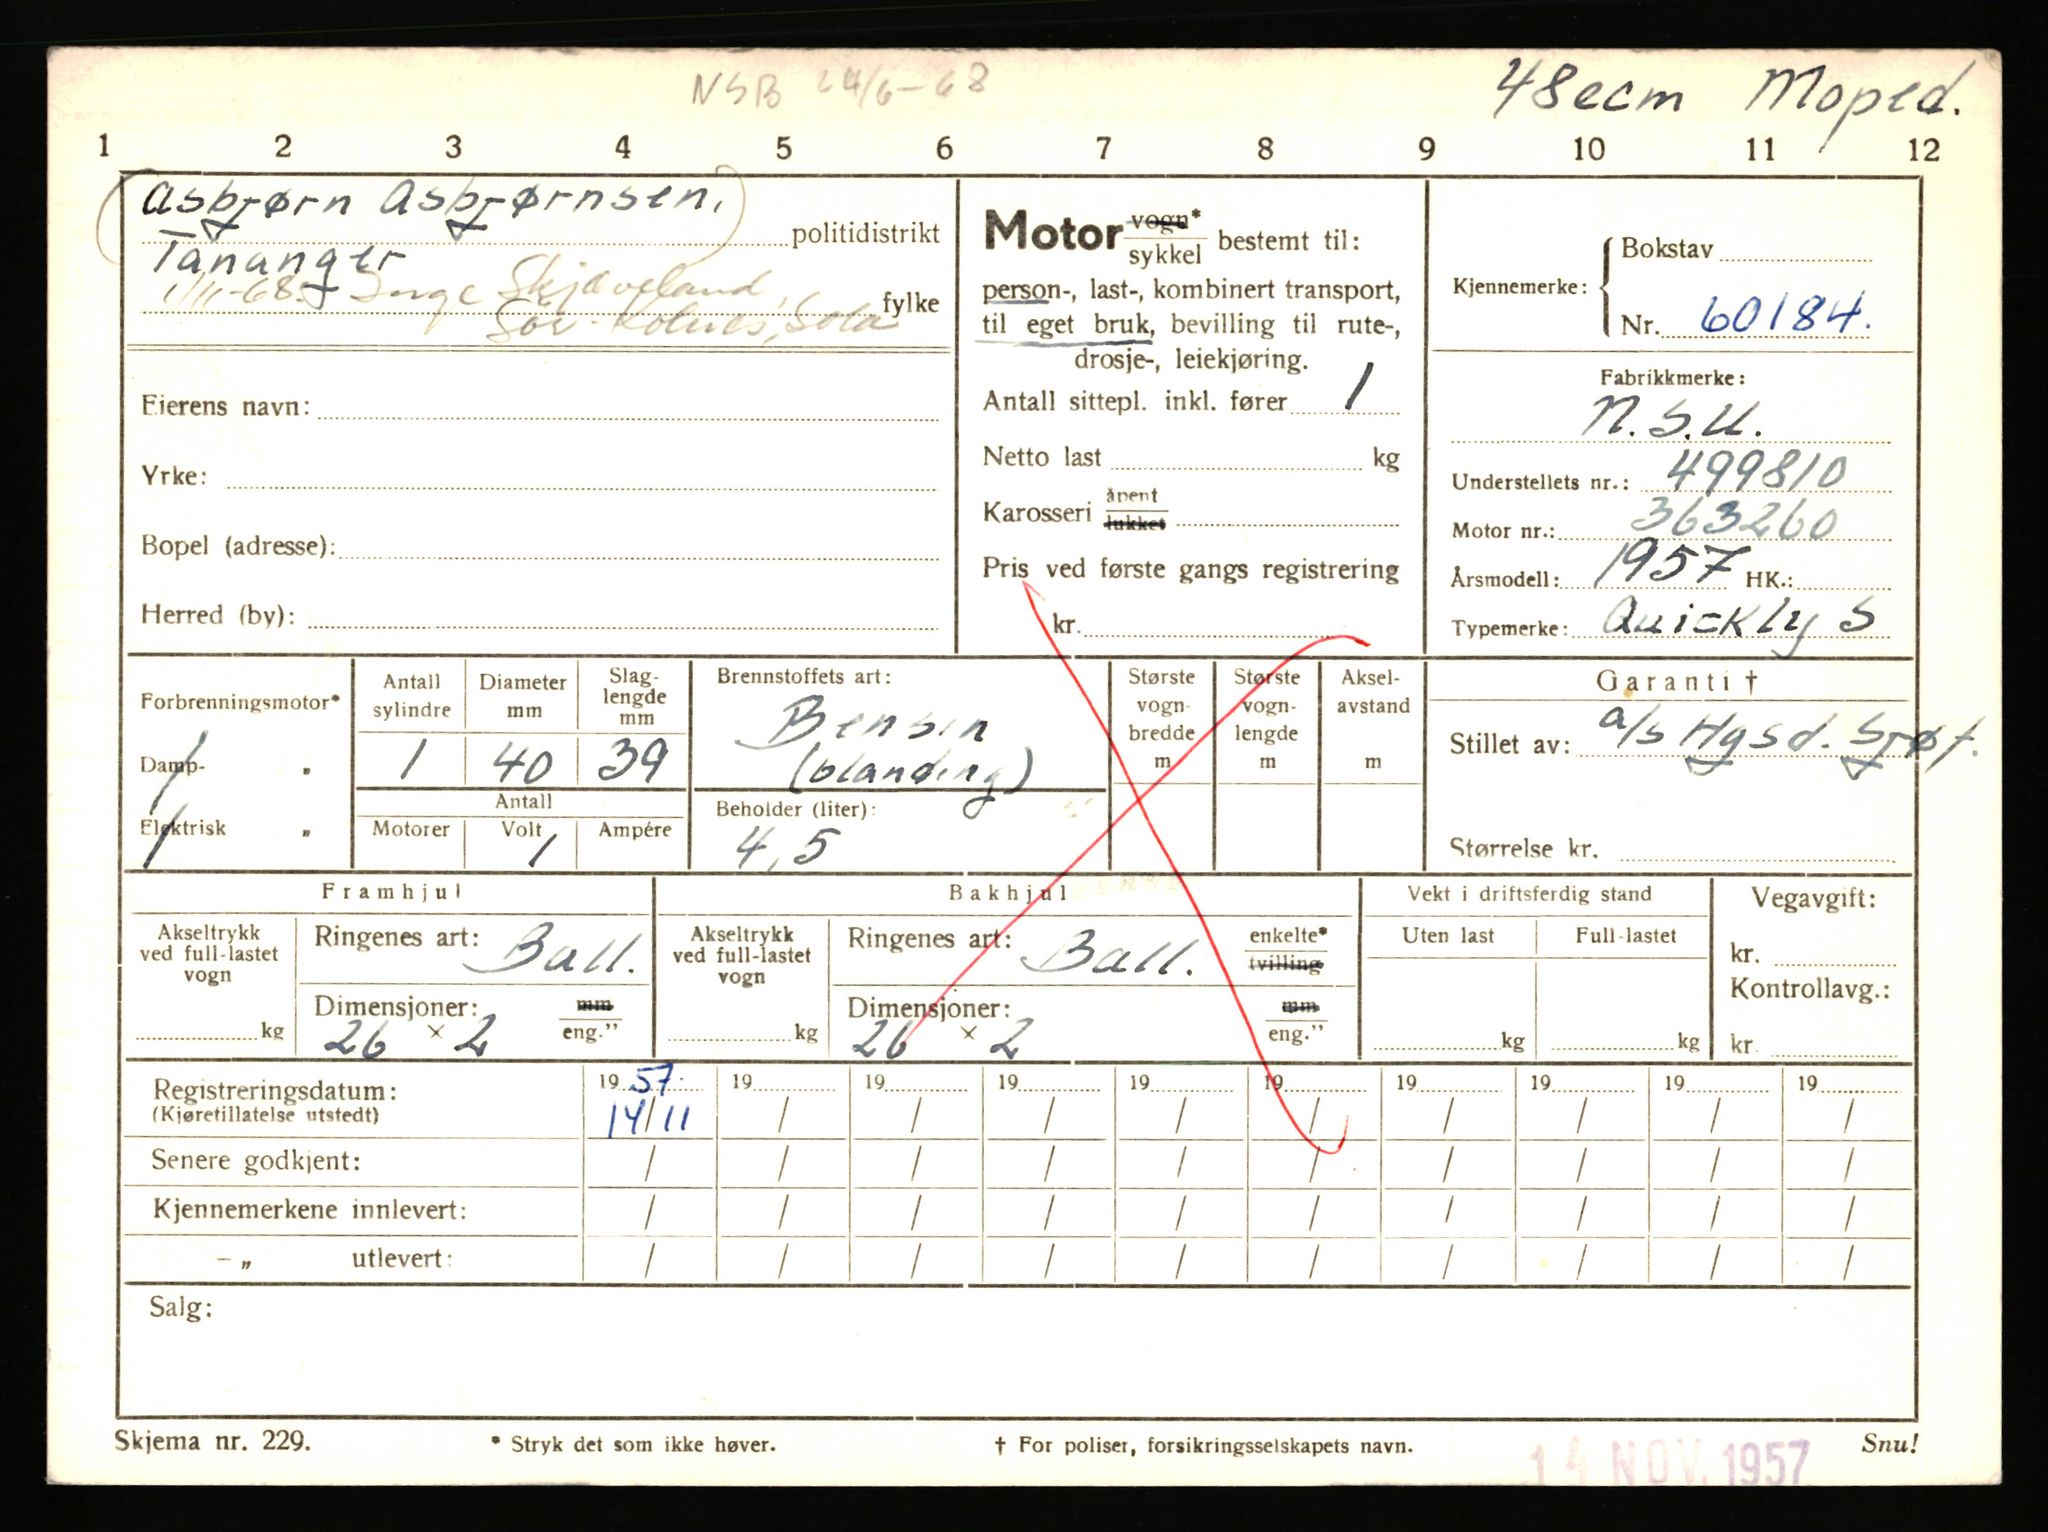 NSB 24/6-68
48ccm Moped.
1 2 3 4 5 6 7 8 9 10 11 12
Asbjørn Asbjørnsen,
politidistrikt
Tananger
1/11-68 Inge Skjæveland,
fylke
Sør-Kolnes, Sola
Eierens navn:
Yrke:
Bopel (adresse):
Herred (by):
Motor vogn* sykkel bestemt til:
person-, last-, kombinert transport,
til eget bruk, bevilling til rute-,
drosje-, leiekjøring.
Antall sittepl. inkl. fører 1
Netto last kg
Karosseri åpent lukket
Pris ved første gangs registrering
kr.
Kjennemerke: Bokstav
Nr. 60184.
Fabrikkmerke:
N.S.U.
Understellets nr.: 499810
Motor nr.: 363260
Årsmodell: 1957 HK.:
Typemerke: Quickly S
Forbrenningsmotor*
Damp- „
Elektrisk „
Antall sylindre
Diameter mm
Slag-
lengde
mm
1 40 39
Antall
Motorer Volt Ampére
Brennstoffets art:
Bensin
(blanding)
Beholder (liter):
4,5
Største
vogn-
bredde
m
Største
vogn-
lengde
m
Aksel-
avstand
m
Garanti †
Stillet av: a/s Hgsd. Sjøf.
Størrelse kr.
Framhjul
Akseltrykk
ved full-lastet
vogn
kg
Ringenes art: Ball.
Dimensjoner: mm
26 × 2 eng.”
Bakhjul
Akseltrykk
ved full-lastet
vogn
kg
Ringenes art: Ball. enkelte* tvilling
Dimensjoner: mm
26 × 2 eng.”
Vekt i driftsferdig stand
Uten last Full-lastet
kg kg
Vegavgift:
kr.
Kontrollavg.:
kr.
Registreringsdatum: 1957. 19 19 19 19 19 19 19 19 19
(Kjøretillatelse utstedt) 14/11 / / / / / / / / /
Senere godkjent: / / / / / / / / / /
Kjennemerkene innlevert: / / / / / / / / / /
— „ utlevert: / / / / / / / / / /
Salg:
Skjema nr. 229. * Stryk det som ikke høver. † For poliser, forsikringsselskapets navn. Snu!
14 NOV. 1957